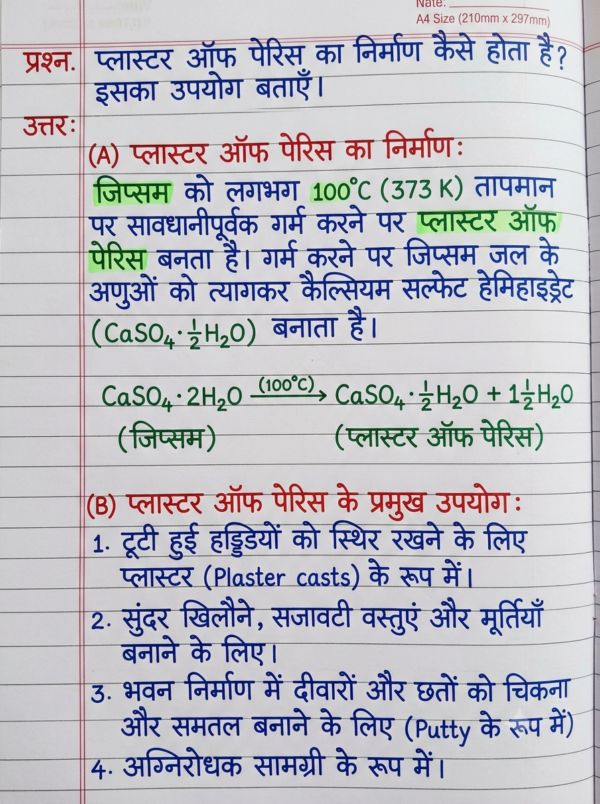 Nate:
A4 Size (210mm x 297mm)
प्रश्न. प्लास्टर ऑफ पेरिस का निर्माण कैसे होता है?
इसका उपयोग बताएँ।
उत्तर:
(A) प्लास्टर ऑफ पेरिस का निर्माण:
जिप्सम को लगभग 100°C (373 K) तापमान
पर सावधानीपूर्वक गर्म करने पर प्लास्टर ऑफ
पेरिस बनता है। गर्म करने पर जिप्सम जल के
अणुओं को त्यागकर कैल्सियम सल्फेट हेमिहाइड्रेट
(CaSO₄·½H₂O) बनाता है।
CaSO₄·2H₂O —(100°C)→ CaSO₄·½H₂O + 1½H₂O
(जिप्सम) (प्लास्टर ऑफ पेरिस)
(B) प्लास्टर ऑफ पेरिस के प्रमुख उपयोग:
1. टूटी हुई हड्डियों को स्थिर रखने के लिए
प्लास्टर (Plaster casts) के रूप में।
2. सुंदर खिलौने, सजावटी वस्तुएं और मूर्तियाँ
बनाने के लिए।
3. भवन निर्माण में दीवारों और छतों को चिकना
और समतल बनाने के लिए (Putty के रूप में)
4. अग्निरोधक सामग्री के रूप में।